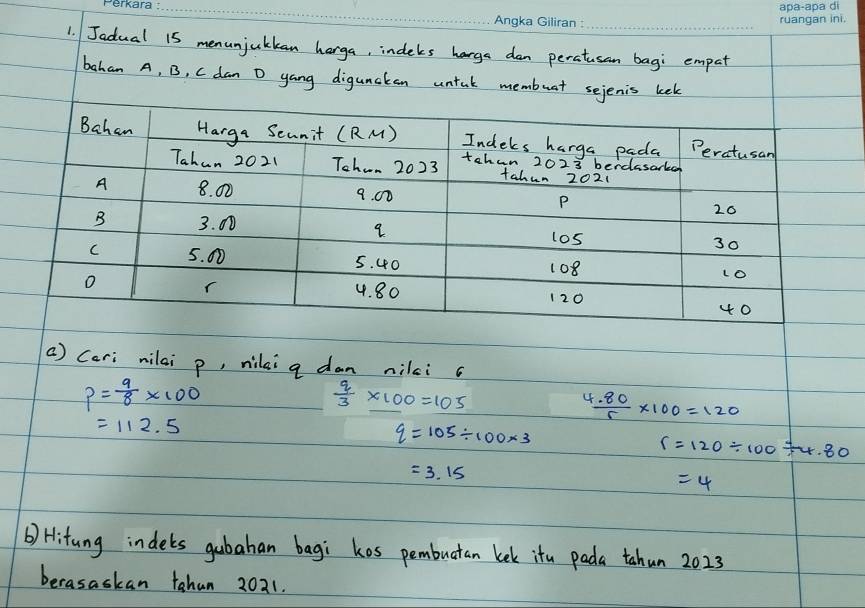 Perkara :
Angka Giliran :
apa-apa di
ruangan ini.
1. Jadual 15 menunjukkan harga, indeks harga dan peratusan bagi empat
bahan A, B, C dan D yang digunakan untuk membuat sejenis kek
Bahan Harga Seunit (RM) Indeks harga pada tahun 2023 berdasarkan tahun 2021 Peratusan
Tahun 2021 Tahun 2023
A 8.00 9.00 P 20
B 3.00 q 105 30
C 5.00 5.40 108 10
D r 4.80 120 40
a) Cari nilai p, nilai q dan nilai r
P = 9/8 × 100
= 112.5
q/3 × 100 = 105
q = 105 ÷ 100 × 3
= 3.15
4.80/r × 100 = 120
r = 120 ÷ 100 ÷ 4.80
= 4
b) Hitung indeks gubahan bagi kos pembuatan kek itu pada tahun 2023
berasaskan tahun 2021.